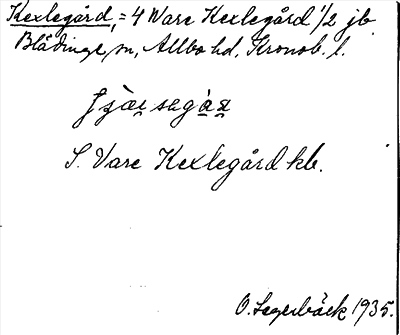 Kexlegård, = 4 N Vare Kexlegård 1/2 jb
Blädinge sn, Allbo hd, Kronob. l.
S. Vare Kexlegård kb.
O. Lagerbäck 1935.